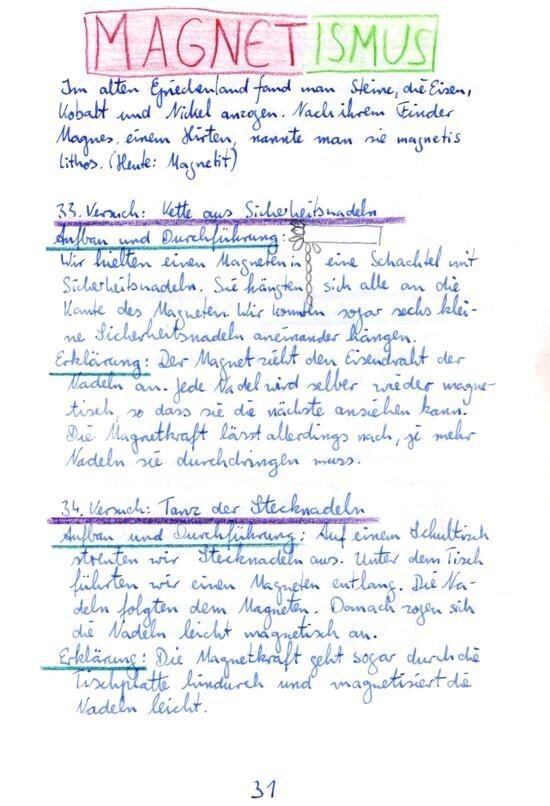 MAGNETISMUS
Im alten Griechenland fand man Steine, die Eisen,
Kobalt und Nickel anzogen. Nach ihrem Finder
Magnes, einem Hirten, nannte man sie magnetis
lithos. (Heute: Magnetit)
33. Versuch: Kette aus Sicherheitsnadeln
Aufbau und Durchführung:
Wir hielten einen Magneten in eine Schachtel mit
Sicherheitsnadeln. Sie hängten sich alle an die
Kante des Magneten. Wir konnten sogar sechs klei-
ne Sicherheitsnadeln aneinander hängen.
Erklärung: Der Magnet zieht den Eisendraht der
Nadeln an. Jede Nadel wird selber wieder magne-
tisch, so dass sie die nächste anziehen kann.
Die Magnetkraft lässt allerdings nach, je mehr
Nadeln sie durchdringen muss.
34. Versuch: Tanz der Stecknadeln
Aufbau und Durchführung: Auf einem Schultisch
streuten wir Stecknadeln aus. Unter dem Tisch
führten wir einen Magneten entlang. Die Na-
deln folgten dem Magneten. Danach zogen sich
die Nadeln leicht magnetisch an.
Erklärung: Die Magnetkraft geht sogar durch die
Tischplatte hindurch und magnetisiert die
Nadeln leicht.
31